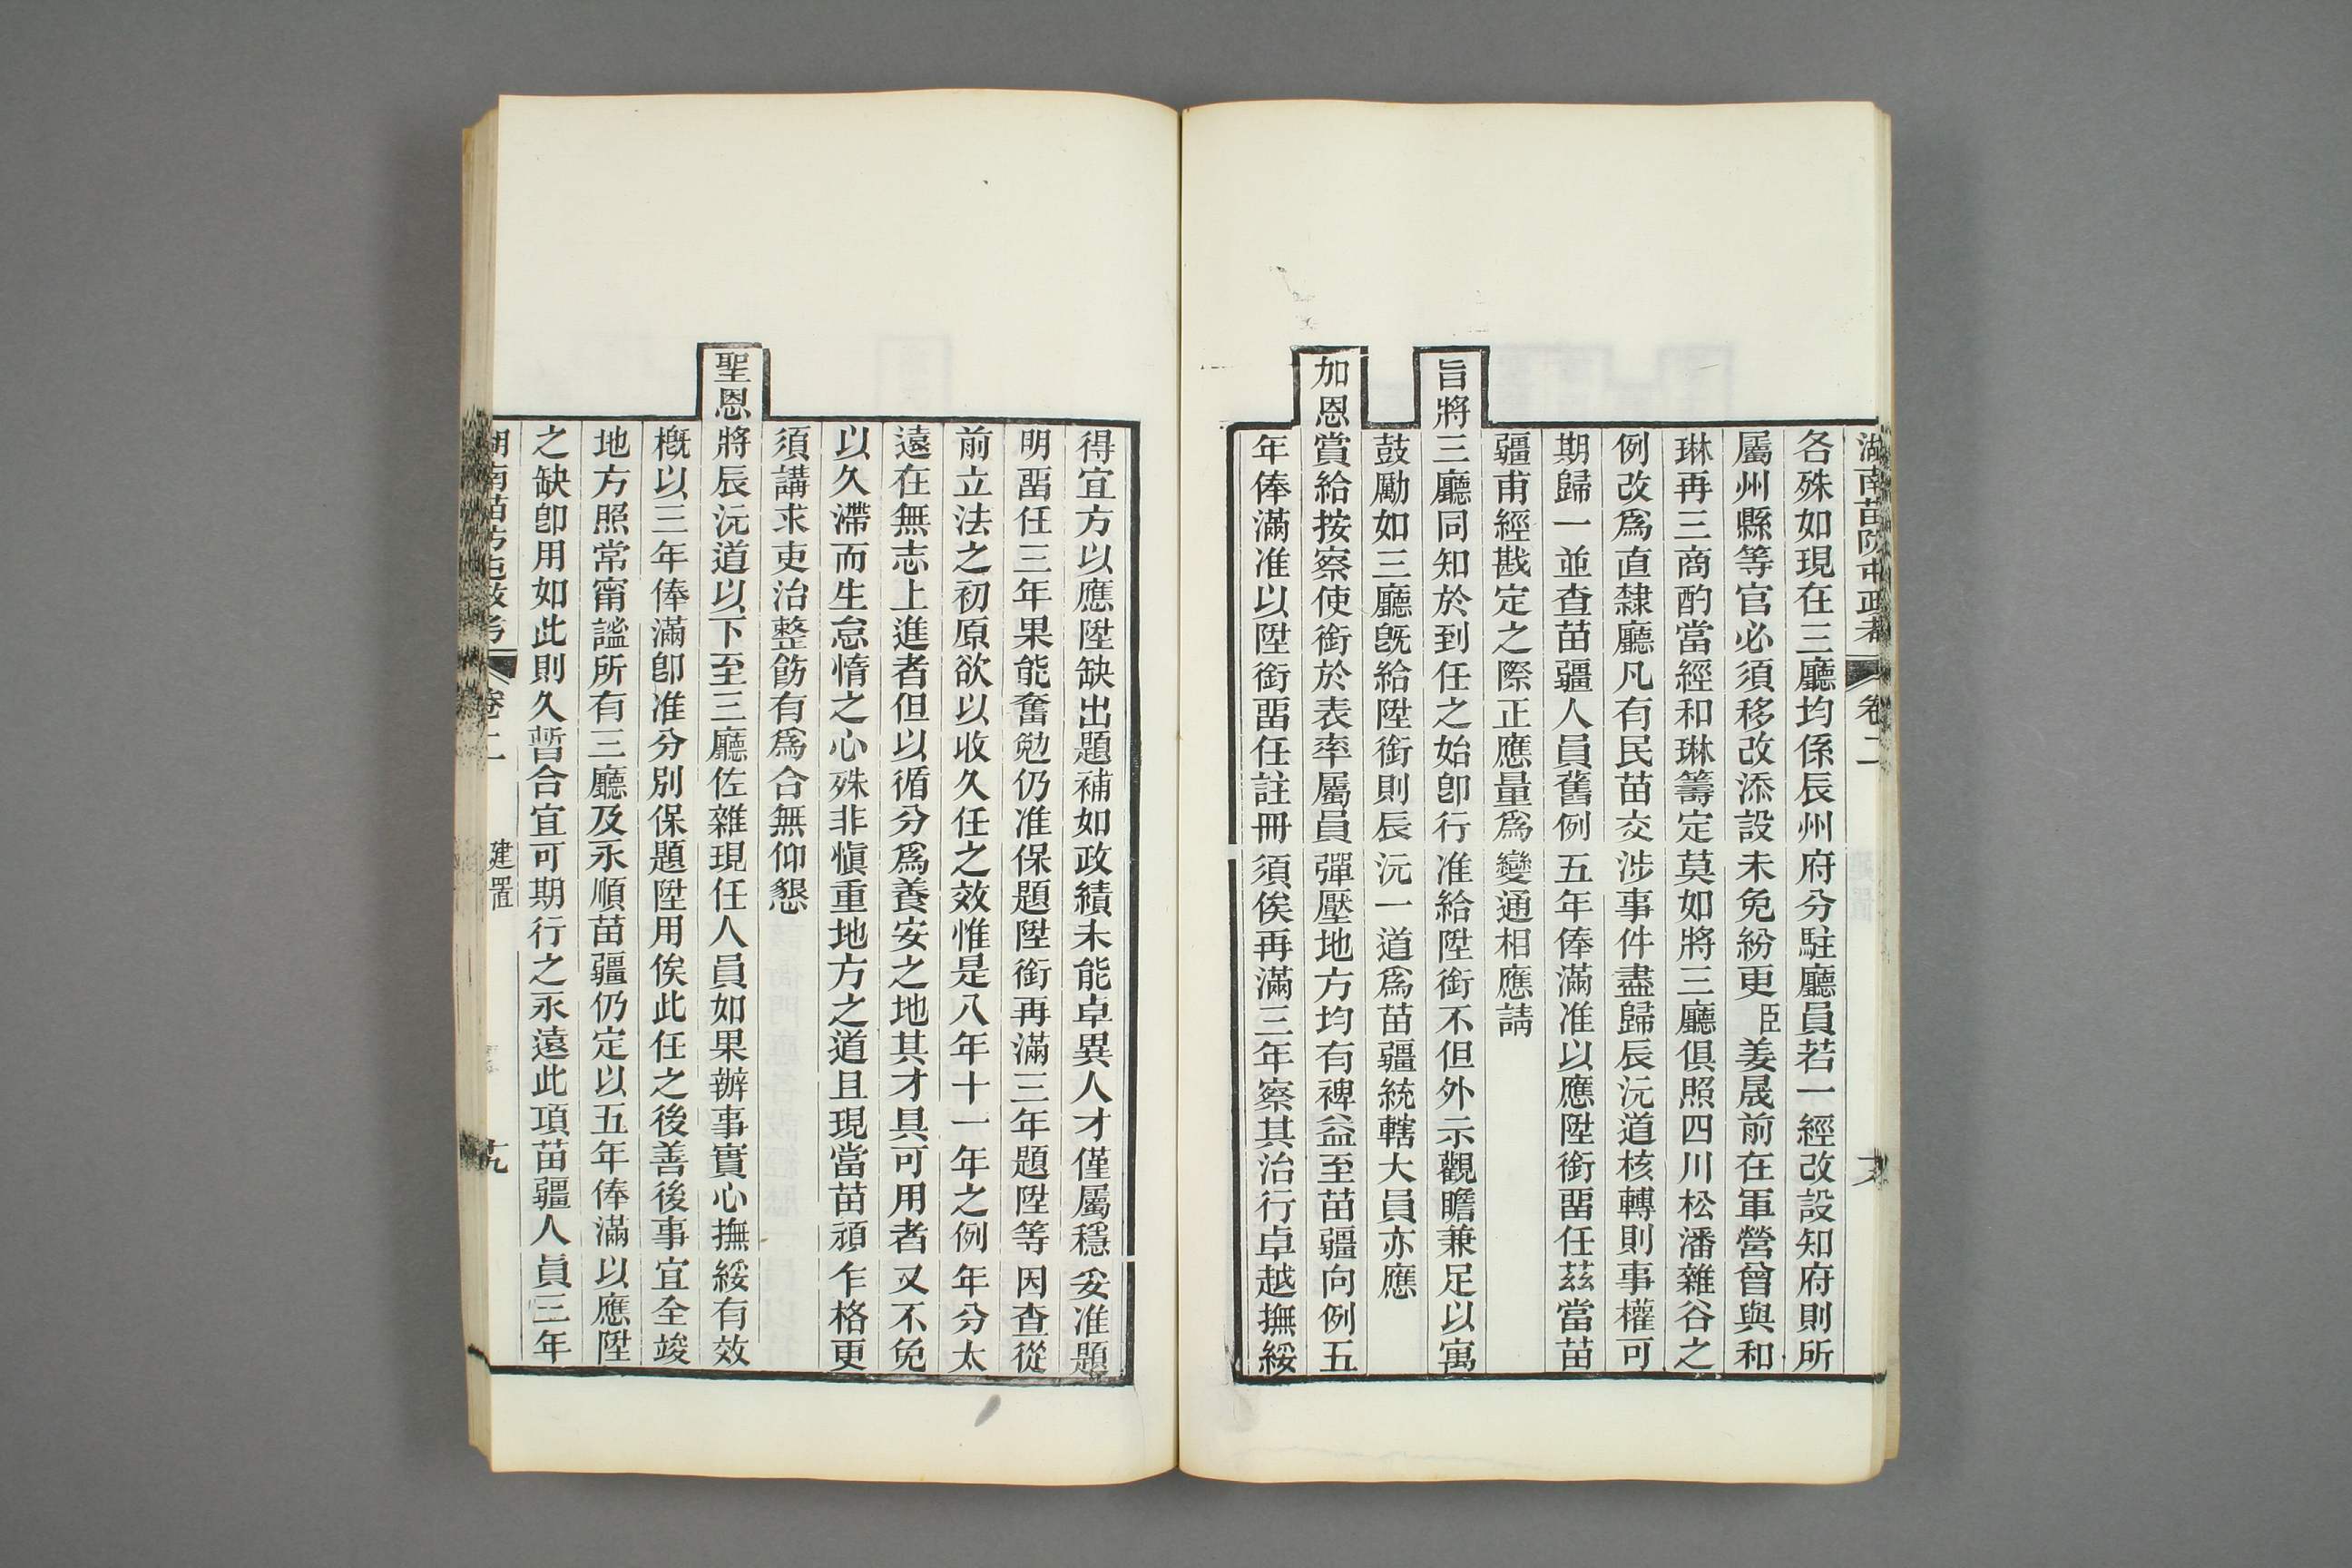 湖南苗防屯政考 卷二
各殊如現在三廳均係辰州府分駐廳員若一經改設知府則所
屬州縣等官必須移改添設未免紛更臣姜晟前在軍營曾與和
琳再三商酌當經和琳籌定莫如將三廳俱照四川松潘雜谷之
例改爲直隸廳凡有民苗交涉事件盡歸辰沅道核轉則事權可
期歸一並查苗疆人員舊例五年俸滿准以應陞銜畱任茲當苗
疆甫經戡定之際正應量爲變通相應請
旨將三廳同知於到任之始卽行准給陞銜不但外示觀瞻兼足以寓
鼓勵如三廳旣給陞銜則辰沅一道爲苗疆統轄大員亦應
加恩賞給按察使銜於表率屬員彈壓地方均有裨益至苗疆向例五
年俸滿准以陞銜畱任註冊須俟再滿三年察其治行卓越撫綏
得宜方以應陞缺出題補如政績未能卓異人才僅屬穩妥准題
明畱任三年果能奮勉仍准保題陞銜再滿三年題陞等因查從
前立法之初原欲以收久任之效惟是八年十一年之例年分太
遠在無志上進者但以循分爲養安之地其才具可用者又不免
以久滯而生怠惰之心殊非愼重地方之道且現當苗頑乍格更
須講求吏治整飭有爲合無仰懇
聖恩將辰沅道以下至三廳佐雜現任人員如果辦事實心撫綏有效
槪以三年俸滿卽准分別保題陞用俟此任之後善後事宜全竣
地方照常甯謐所有三廳及永順苗疆仍定以五年俸滿以應陞
之缺卽用如此則久暫合宜可期行之永遠此項苗疆人員三年
湖南苗防屯政考 卷二 建置 十九